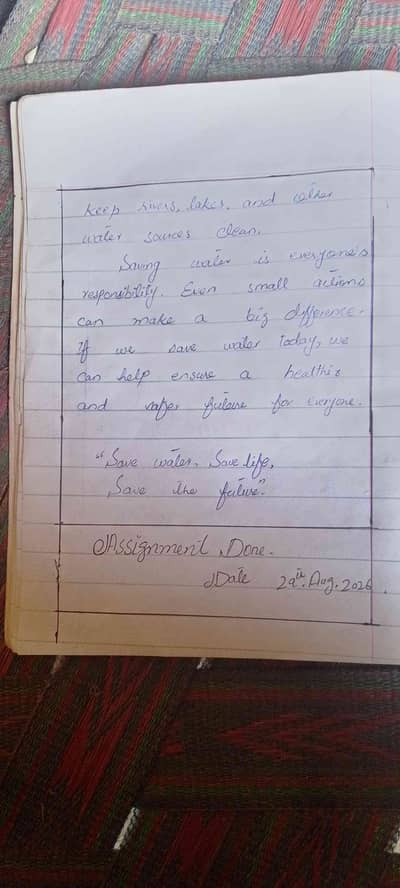 keep rivers, lakes, and other
water sources clean.
Saving water is everyone's
responsibility. Even small actions
can make a big difference.
If we save water today, we
can help ensure a healthie
and safer future for everyone.
"Save water, Save life,
Save the future".
Assignment Done.
Date 29th Aug. 2026.